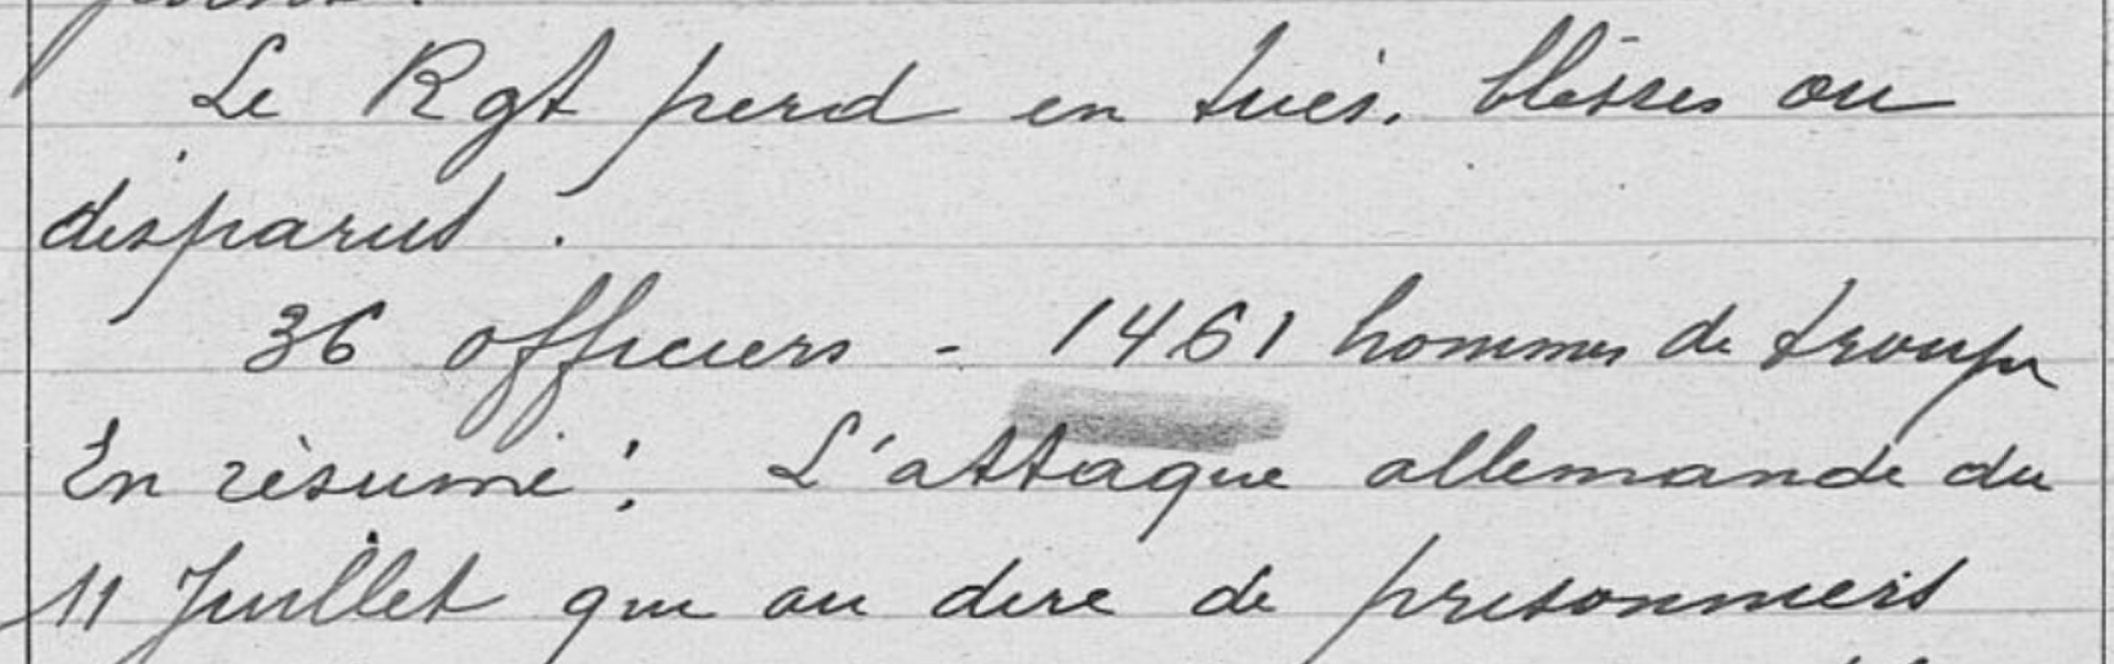 Le Rgt perd en tués, blessés ou
disparus :
36 officiers - 1461 hommes de troupe
En résumé : L'attaque allemande du
11 Juillet que au dire de prisonniers